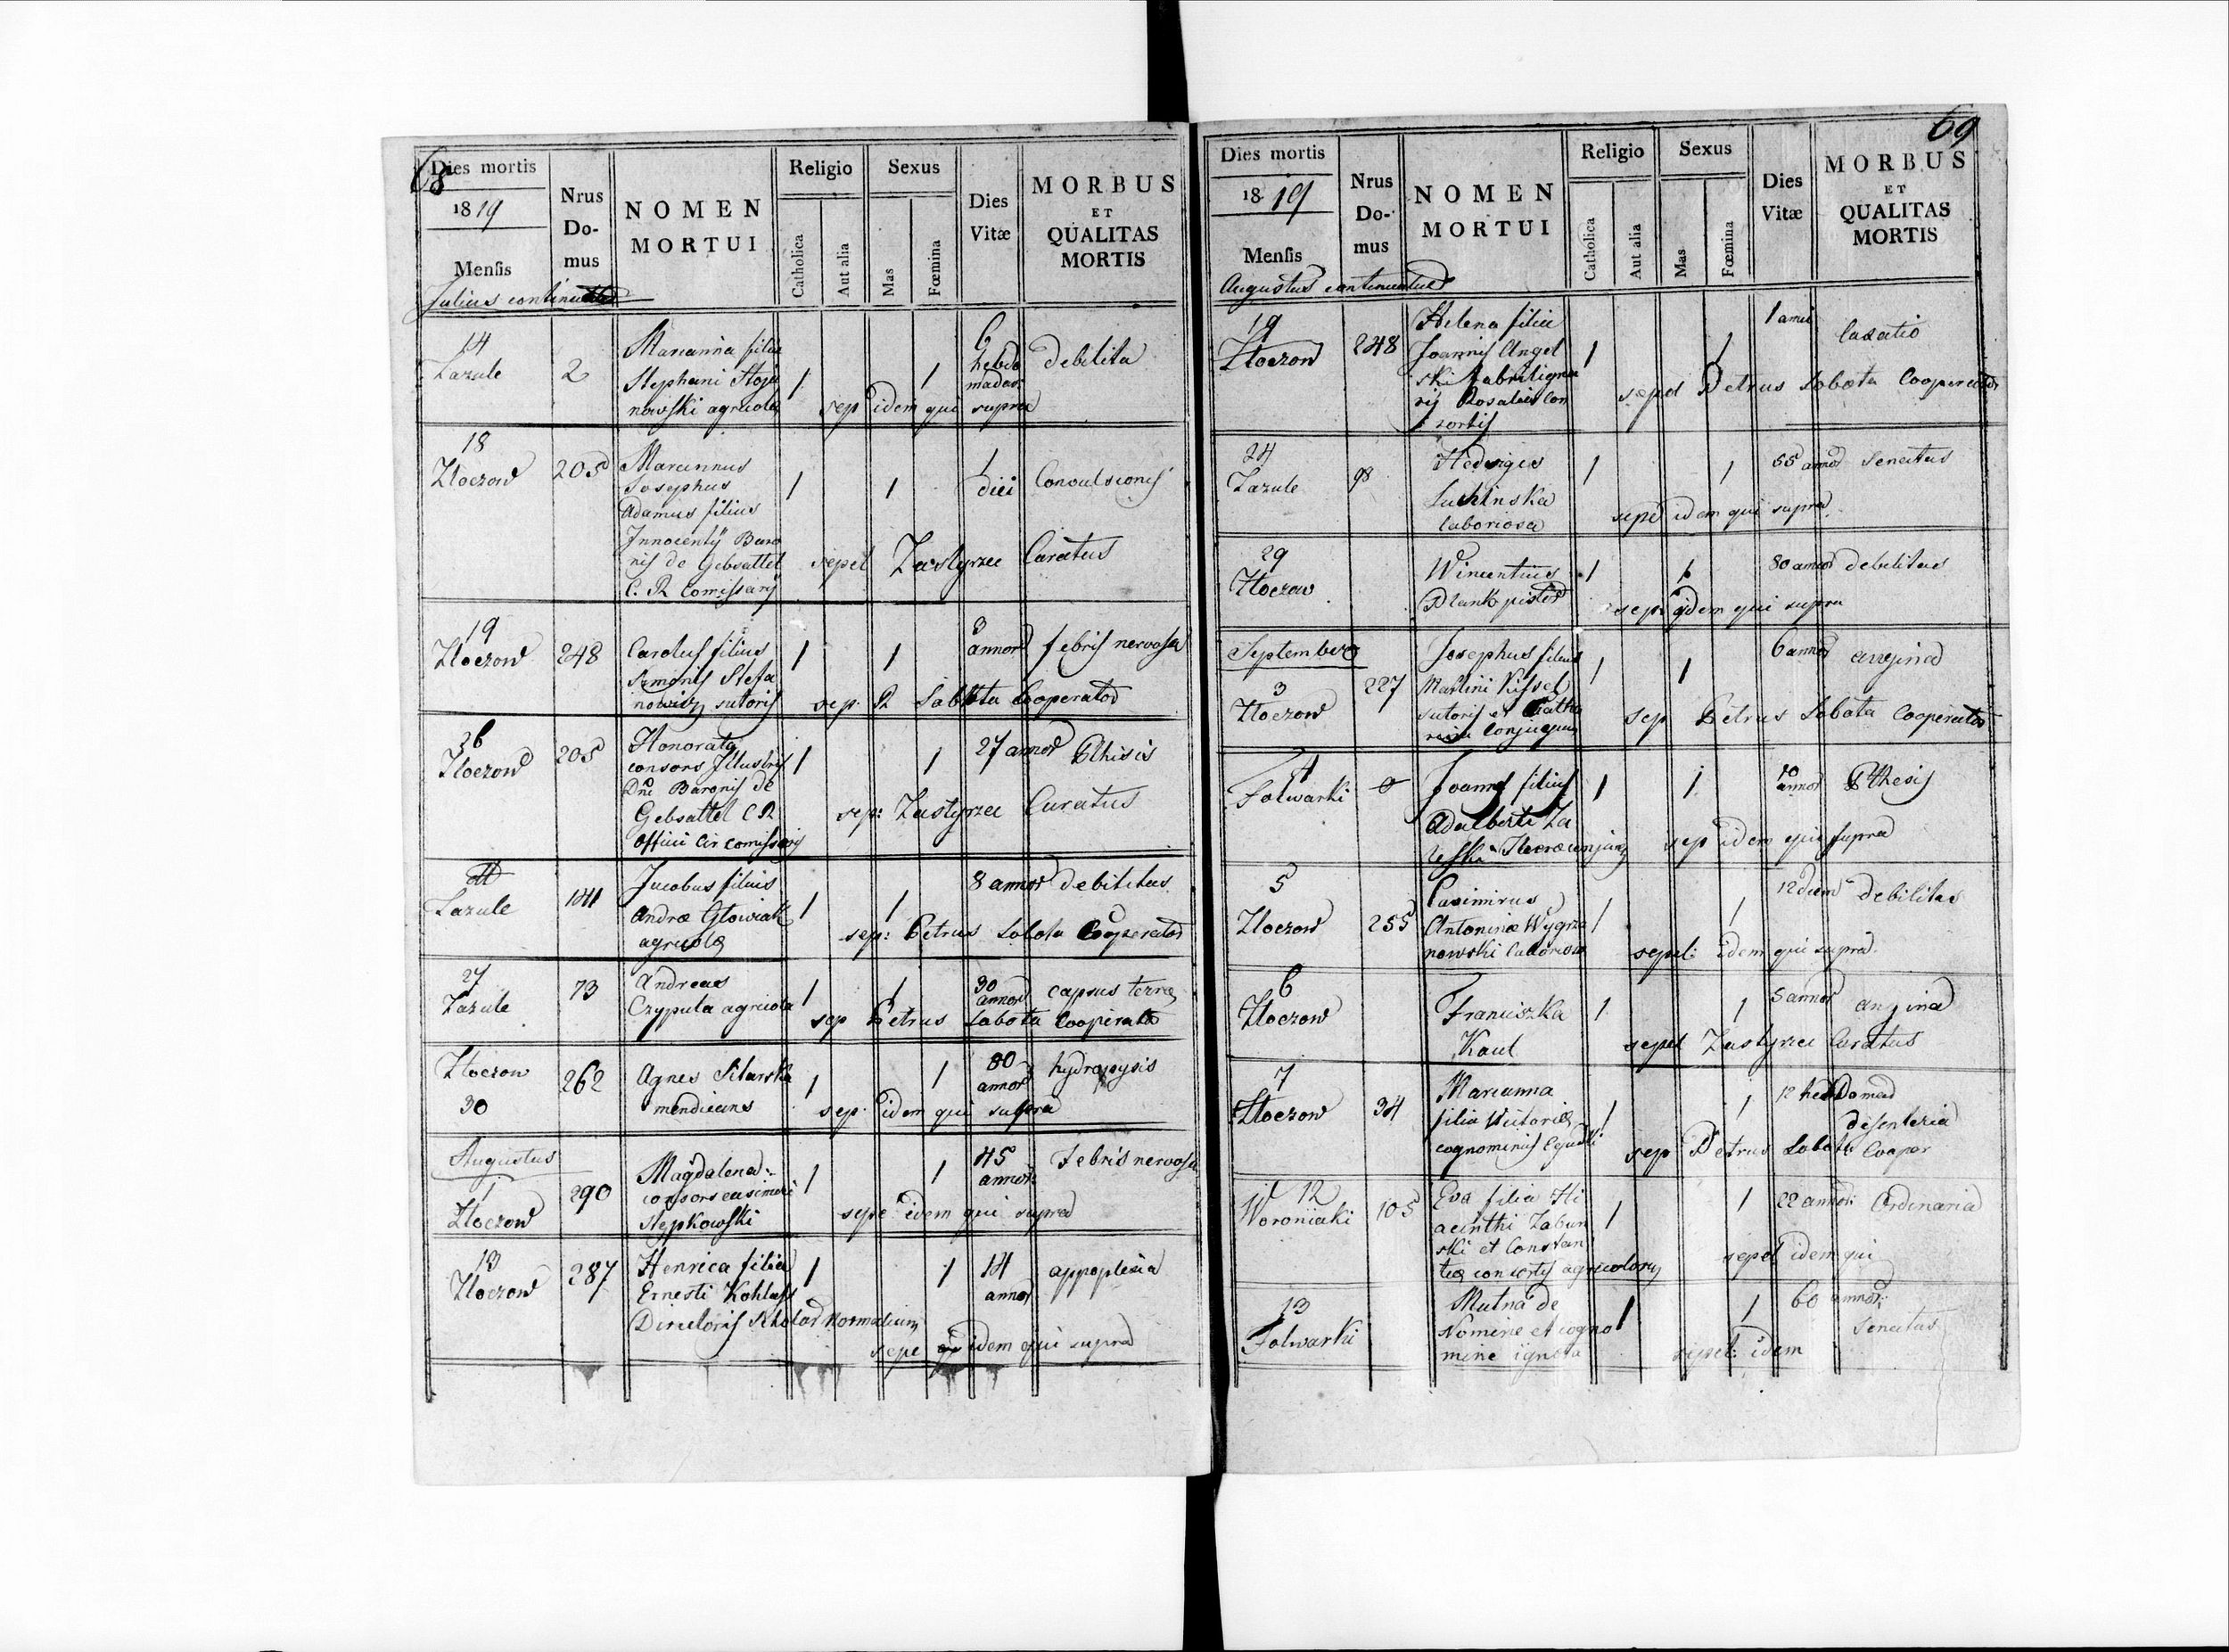 68
Dies mortis
1819
Mensis
Nrus Do-mus
NOMEN MORTUI
Religio
Catholica
Aut alia
Sexus
Mas
Fœmina
Dies Vitæ
MORBUS
ET
QUALITAS
MORTIS
Julius continuatur
14
Zazule
2
Marianna filia
Stephani Stoja
nowski agricola
1
1
6
hebdo
madar
debilita
sep idem qui supra
18
Zloczow
205
Mariannus
Josephus
Adamus filius
Innocentÿ Baro
nis de Gebsattel
C. R. Comissarÿ
1
1
1
diei
Convulsionis
sepel Zastyrzec Curatus
19
Zloczow
248
Carolus filius
Symonis Stefa
nowicz sutoris
1
1
3
annor
febris nervosa
sep. P Sabota Cooperator
26
Zloczow
205
Honorata
consors Illustris
Dni Baronis de
Gebsattel C R
officii Cir comissarij
1
1
27 annor
Pthisis
sep: Zastyrzec Curatus
Zazule
141
Jacobus filius
Andræ Glowiak
agricolæ
1
1
8 annor
debilitas
sep: Petrus Sobota Cooperator
27
Zazule
73
Andreas
Czypula agricola
1
1
30
annor
capsus terræ
sep Petrus Sabota Cooperator
Zloczow
30
262
Agnes Sitarska
mendicans
1
1
80
annor
hydropysis
sep. idem qui supra
Augustus
1
Zloczow
290
Magdalena
consors casimiri
Stepkowski
1
1
45
annor:
Febris nervosa
sepe idem qui supra
13
Zloczow
287
Henrica filia
Ernesti Kohlass
Directoris Scholar Normalium
1
1
14
annor
appoplexia
sepe idem qui supra
69
Dies mortis
1819
Mensis
Nrus Do-mus
NOMEN MORTUI
Religio
Catholica
Aut alia
Sexus
Mas
Fœmina
Dies Vitæ
MORBUS
ET
QUALITAS
MORTIS
Augustus continuatur
19
Zloczow
248
Helena filia
Joannis Angel
ski fabriligna
rij Rosaliæ Con
sortis
1
1
1 anni
laxatio
sepel Petrus Sobota Cooperator
24
Zazule
98
Hedvigis
laboriosa
1
1
55 annor
Senectus
sepe idem qui supra
29
Zloczow
Wincentius
Plank pistor
1
1
80 annor
debilitas
sep. idem qui supra
September
3
Zloczow
227
Josephus filius
Martini Kissel
sutoris et Catha
rina Conjugum
1
1
6 annor
angina
sep Petrus Sobota Cooperator
4
Folwarki
Joannes filius
Adalberti Za
1
1
10
annor
Pthesis
sep idem qui supra
5
Zloczow
255
Casimirus
Antoninæ Wygrza
nowski laboriosa
1
1
12 dierum
debilitas
sepel: idem qui supra
6
Zloczow
Franciszka
Kaul
1
1
5 annor
angina
sepel Zastyrzec Curatus
7
Zloczow
34
Marianna
filia Victoriæ
cognominis
1
1
12 hebdomad
disenteria
sep Petrus Sobota Cooper
12
Woroniaki
105
Eva filia Hi
acinthi Zabun
ski et Constan
tiæ consortis agricolorum
1
1
22 annor:
Ordinaria
sepel idem qui
13
Folwarki
Mutna de
Nomine et cogno
mine ignota
1
1
60 annor:
Senectus
sepel: idem